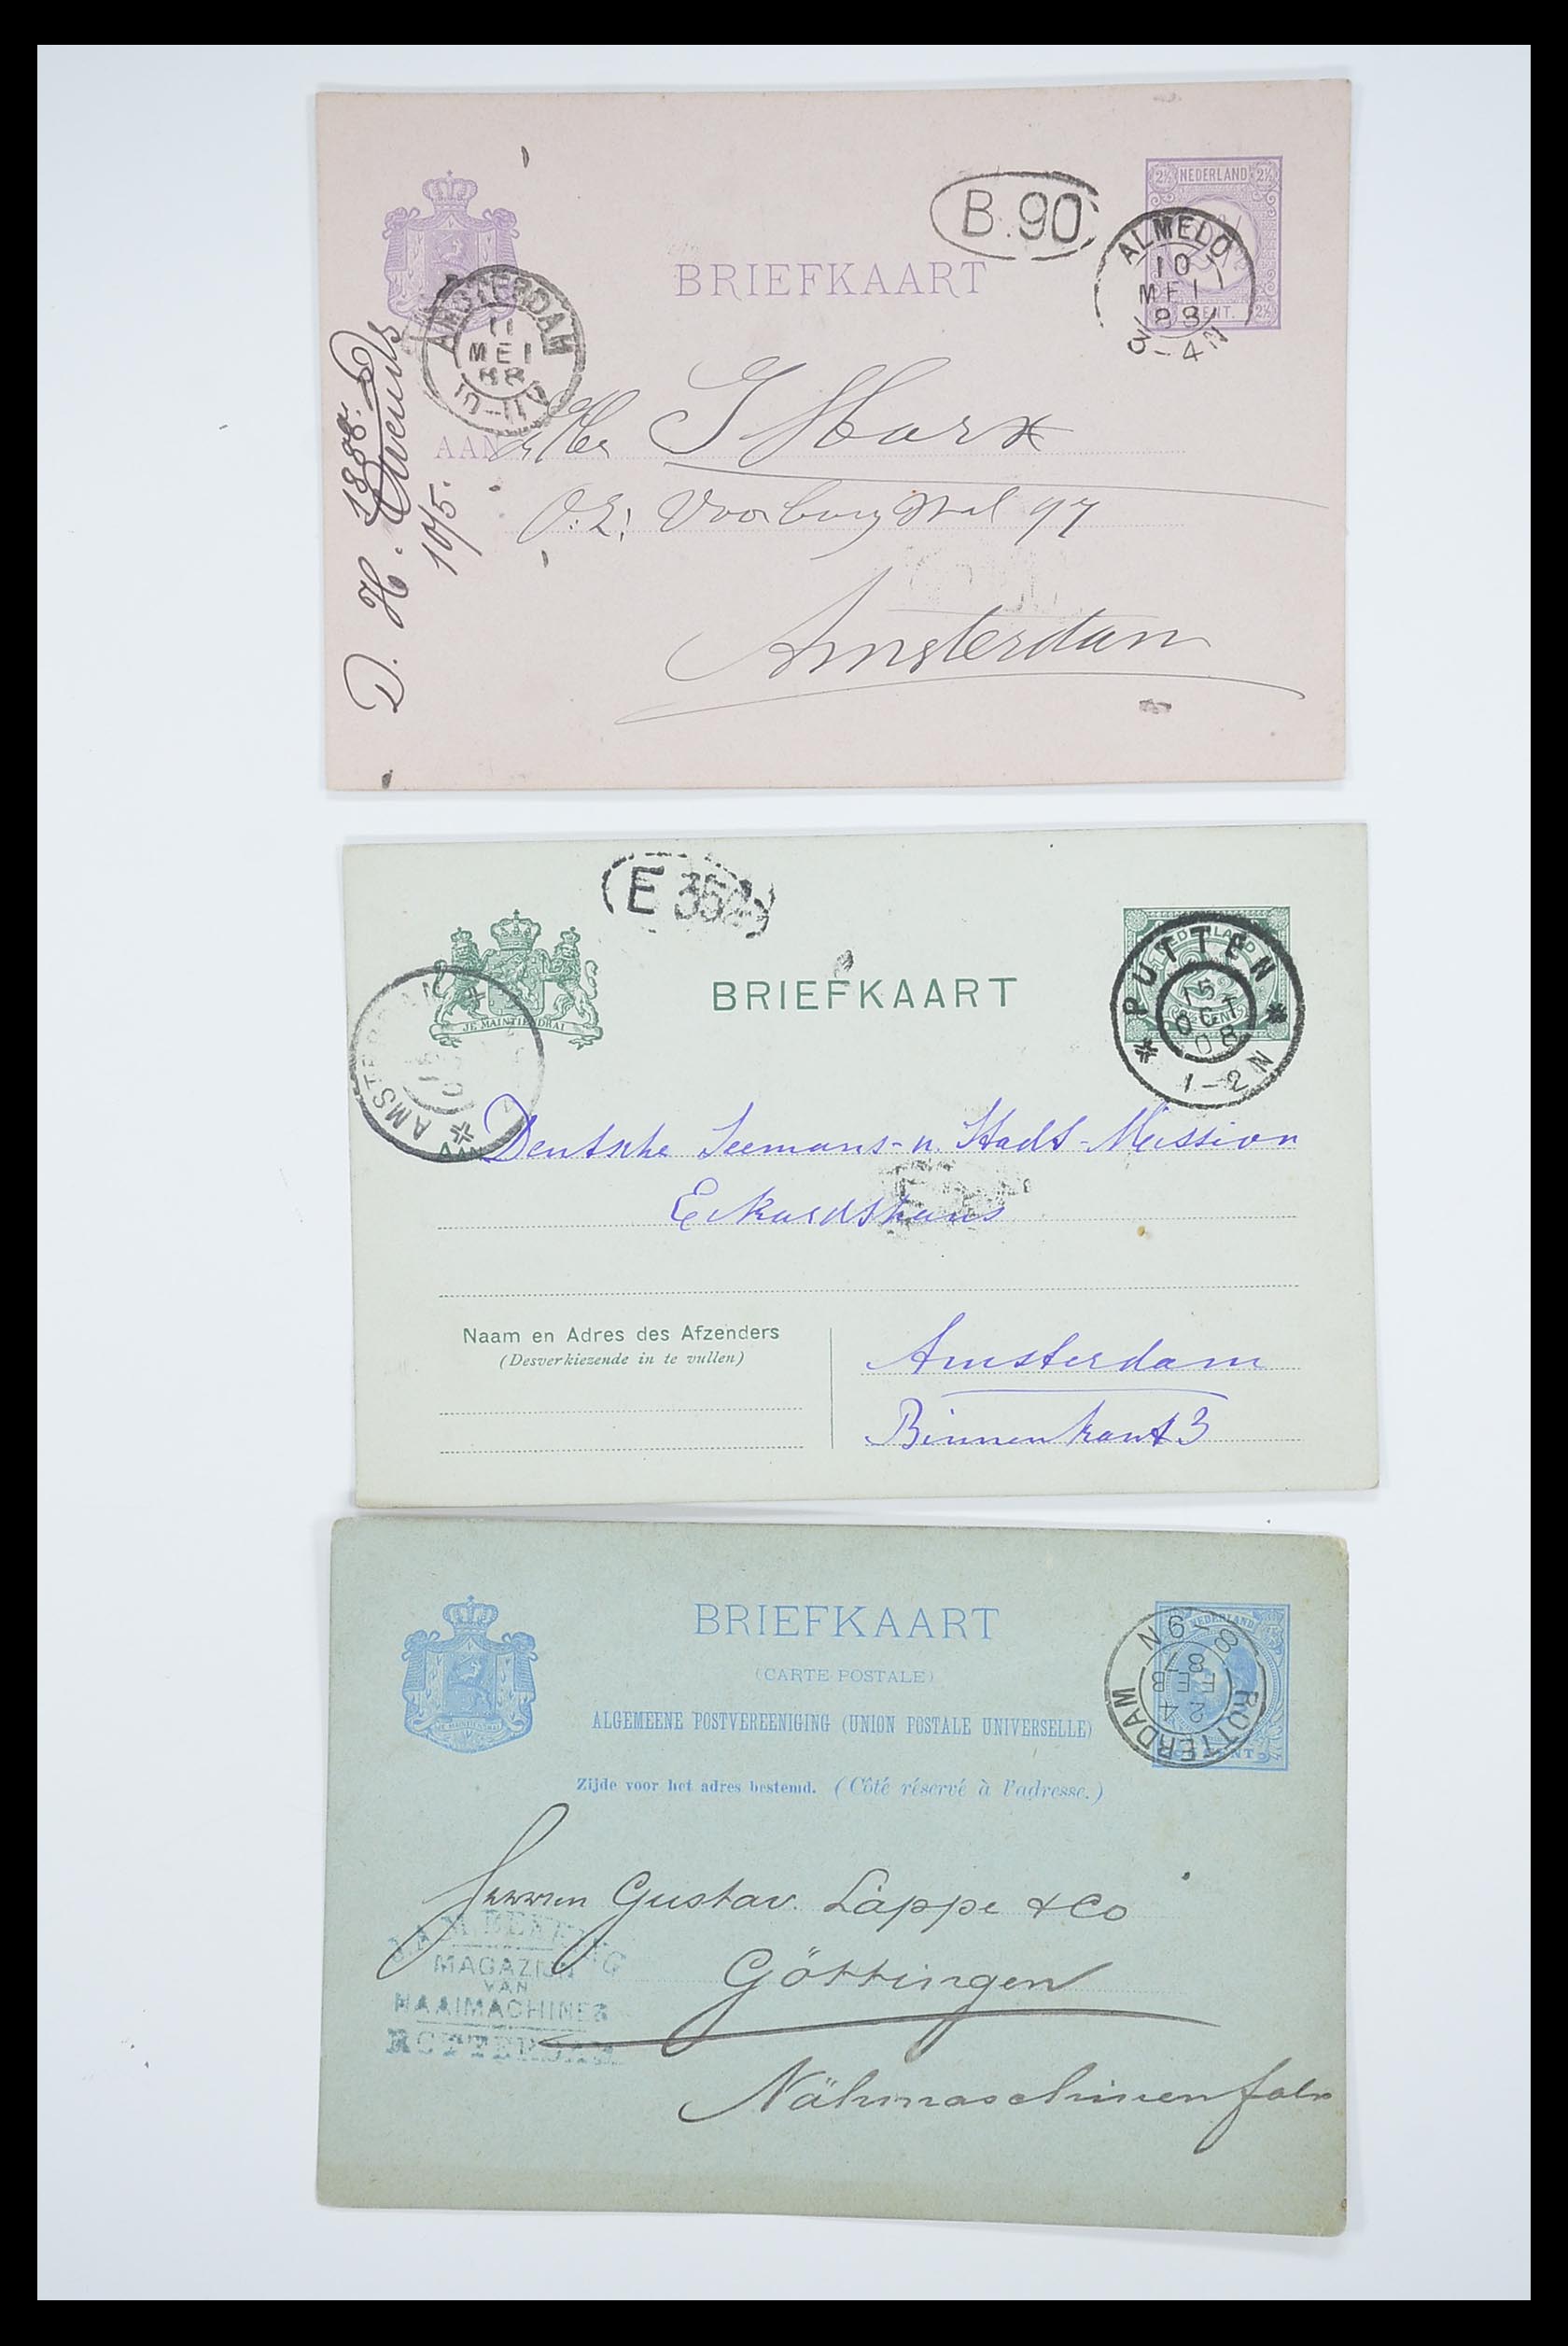 2½ NEDERLAND 2½
B.90
ALMELO
10
MEI
88
3-4N
CENT. 2½
BRIEFKAART
AMSTERDAM
11
MEI
88
10-11V
1888.
D. H.
10/5.
AAN
J Marx
O.Z. Voorburgwal 97
Amsterdam
E 352
BRIEFKAART
NEDERLAND
PUTTEN
15
OCT
08
1-2N
CENT
JE MAINTIENDRAI
AMSTERDAM
AAN
Deutsche Seemans- u. Stadt-Mission
Eckardshaus
Naam en Adres des Afzenders
(Desverkiezende in te vullen)
Amsterdam
Binnenkant 3
BRIEFKAART
(CARTE POSTALE)
ALGEMEENE POSTVEREENIGING (UNION POSTALE UNIVERSELLE)
Zijde voor het adres bestemd. (Côté réservé à l'adresse.)
NEDERLAND
ROTTERDAM
24
FEB
87
8-9N
CENT
Herren Gustav. Lappe & Co
Göttingen
MAGAZIJN
VAN
NAAIMACHINES
ROTTERDAM
Nähmaschinenfabr